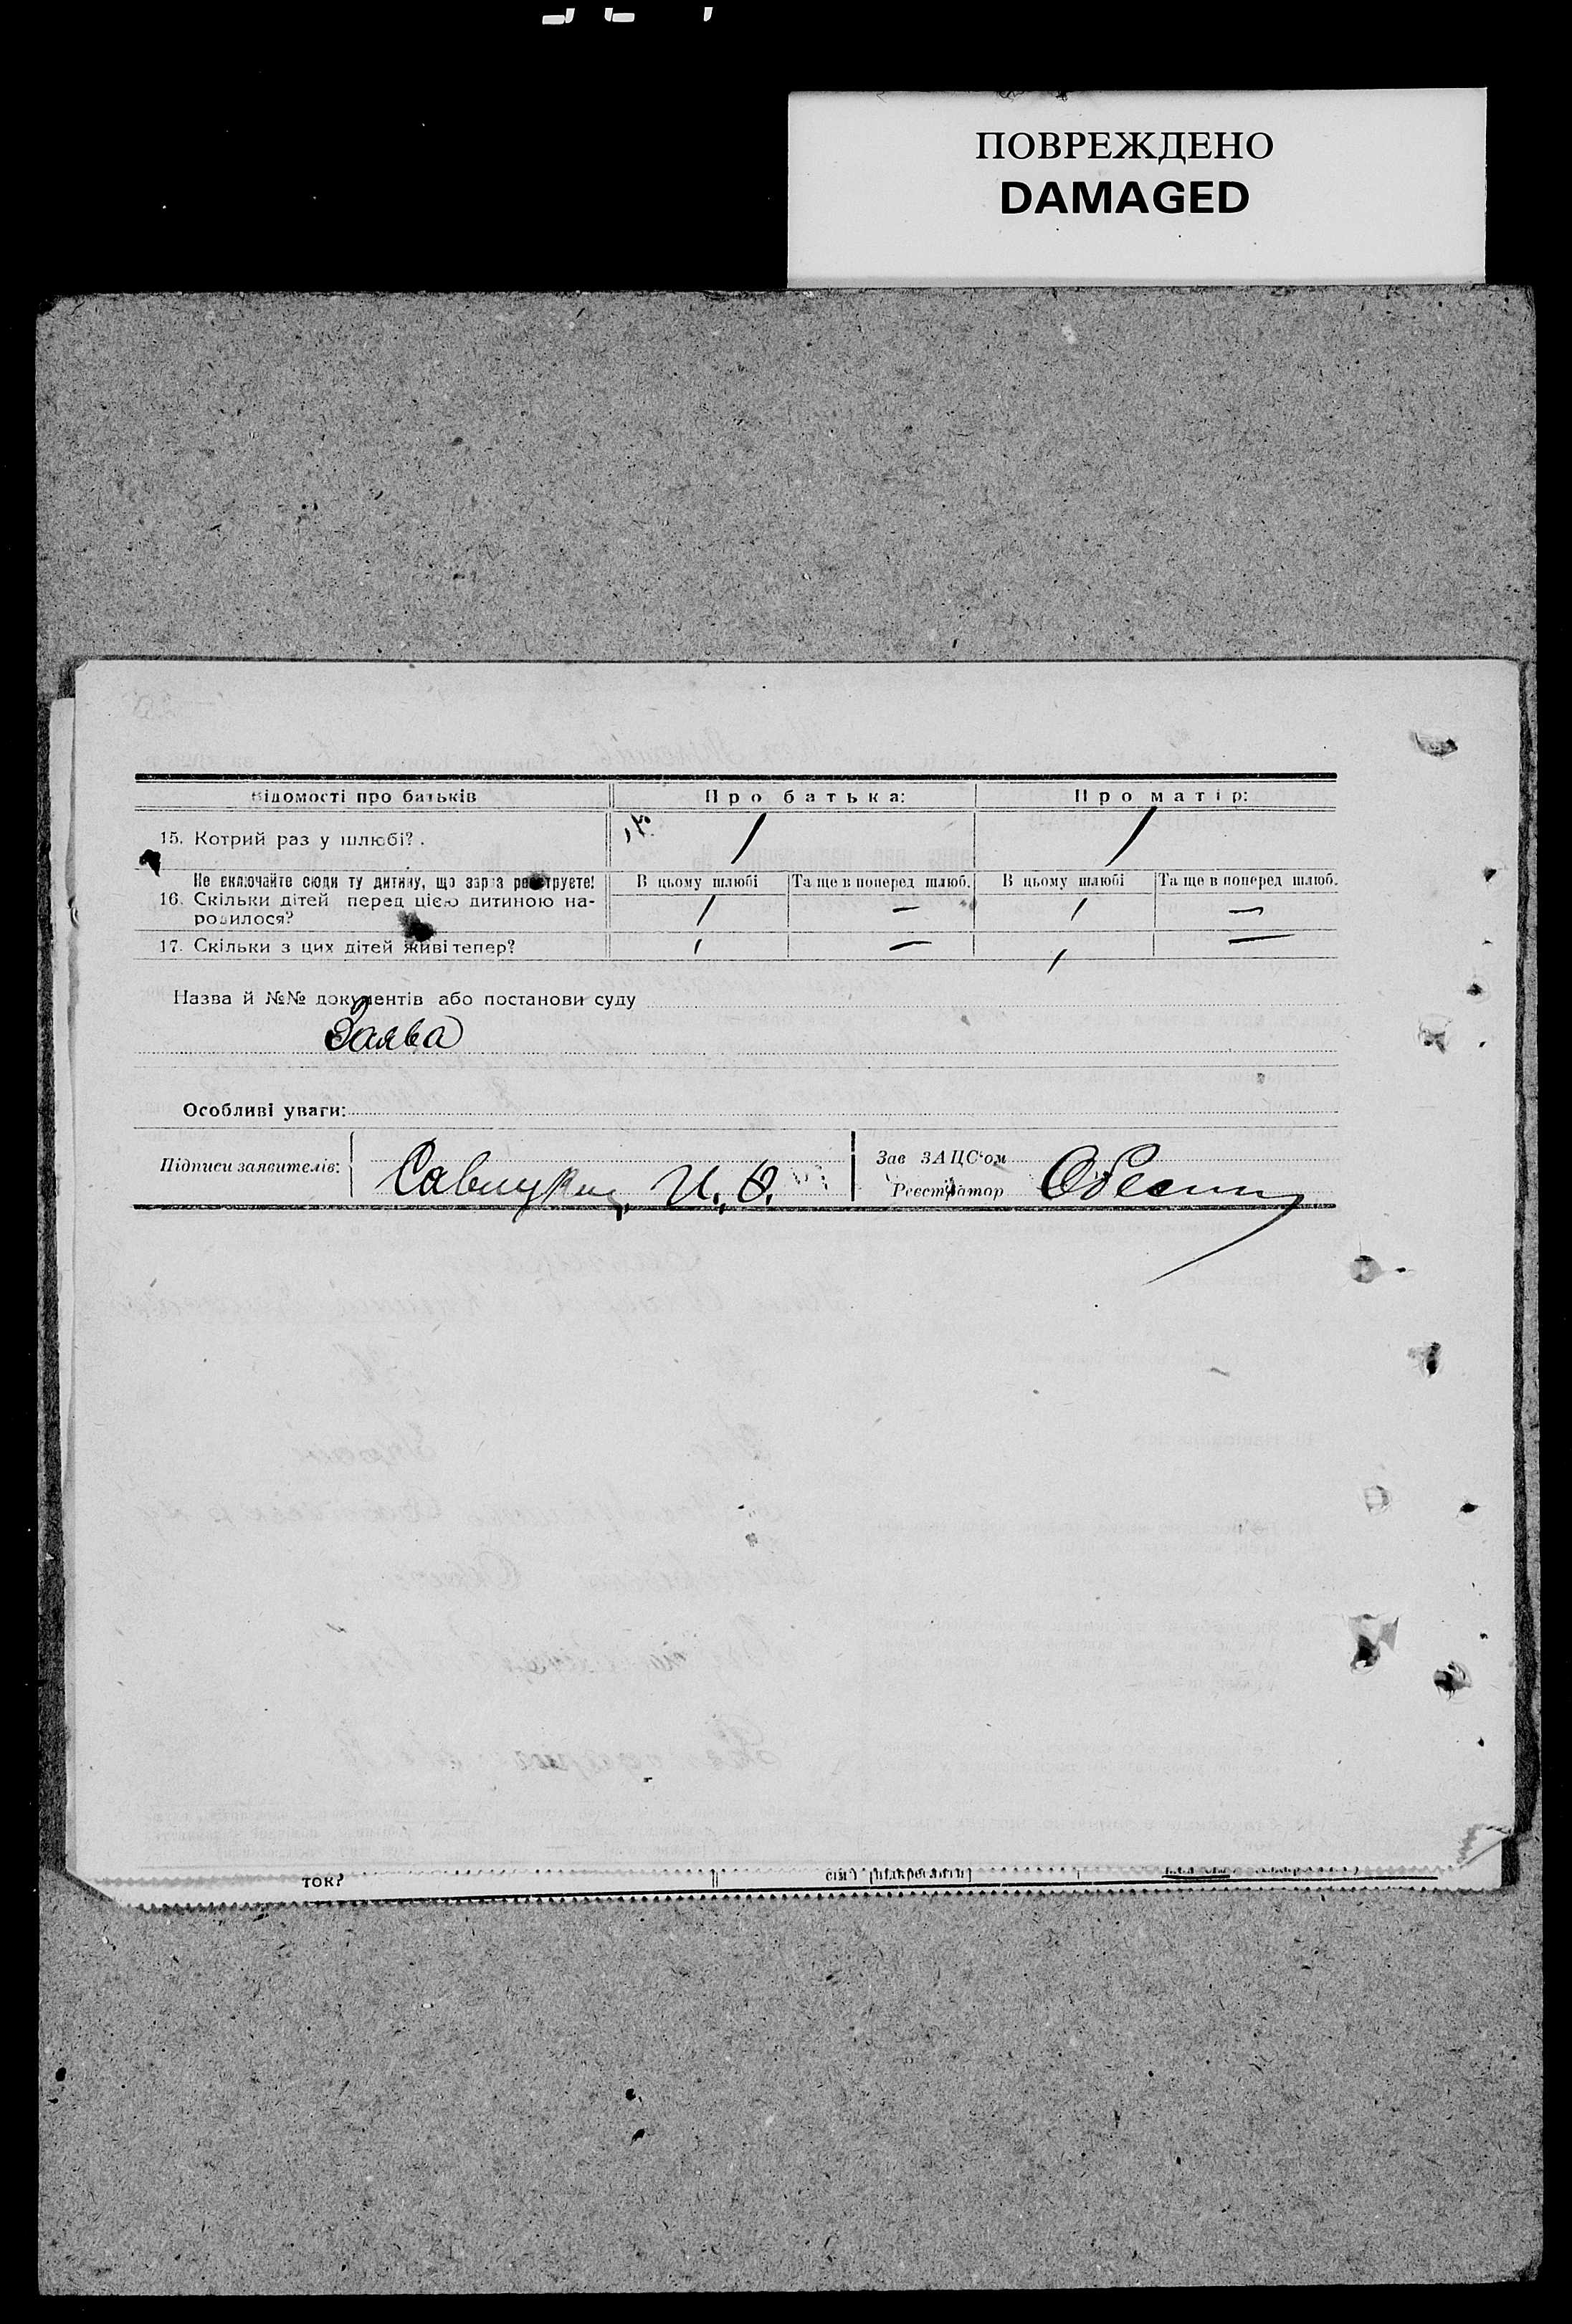 ПОВРЕЖДЕНО
DAMAGED
Відомості про батьків Про батька: Про матір:
15. Котрий раз у шлюбі? . / /
Не включайте сюди ту дитину, що зараз реєструєте! В цьому шлюбі Та ще в поперед шлюб. В цьому шлюбі Та ще в поперед шлюб.
16. Скільки дітей перед цією дитиною на-
родилося? / — / —
17. Скільки з цих дітей живі тепер? / — / —
Назва й №№ документів або постанови суду
Заява
Особливі уваги:
Підписи заявителів: Зав ЗАЦС'ом
Реєстратор
ток? сім'ї [підкреслити]